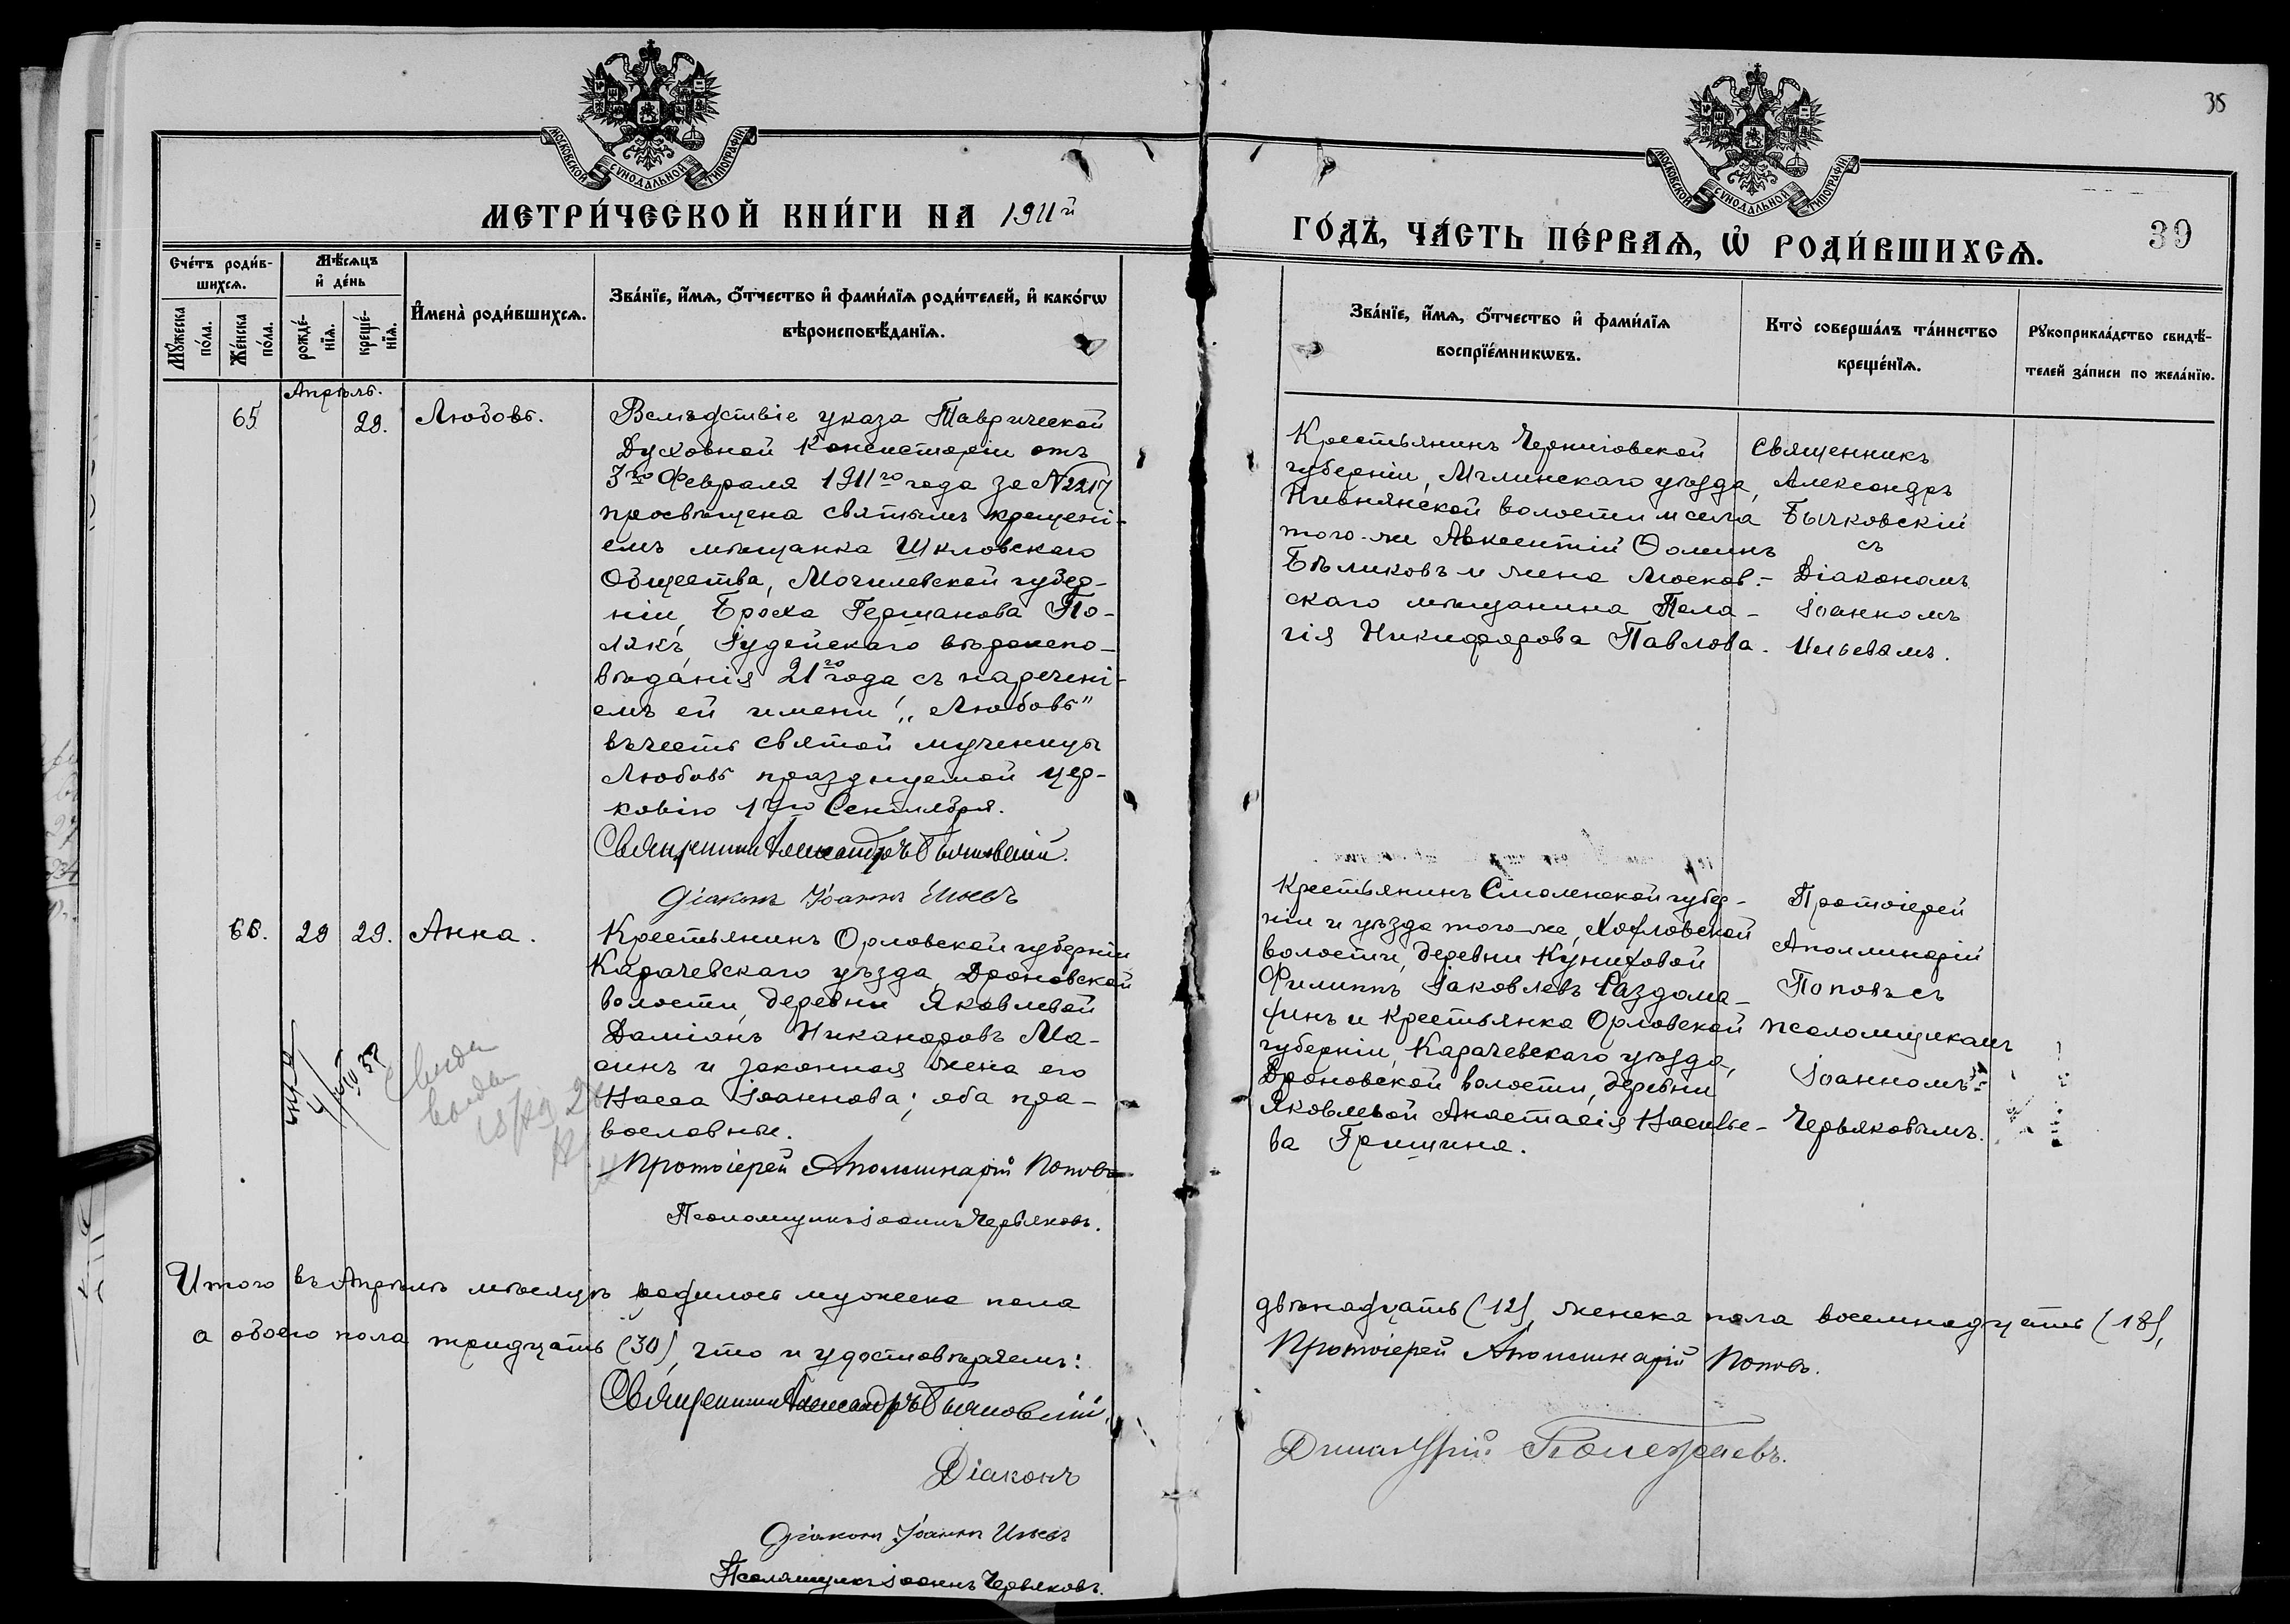 35
МОСКОВСКОЙ СѴНОДАЛЬНОЙ ТИПОГРАФІИ
МОСКОВСКОЙ СѴНОДАЛЬНОЙ ТИПОГРАФІИ
МЕТРИ́ЧЕСКОЙ КНИ́ГИ НА 1911й
ГО́ДЪ, ЧА́СТЬ ПЕ́РВАѦ, Ѽ РОДИ́ВШИХСѦ.
39
Сче́тъ роди́в-
шихсѧ.
Мꙋ́жеска
по́ла.
Же́нска
по́ла.
Мѣ́сѧцъ
и҆ де́нь
рожде́-
нїѧ.
креще́-
нїѧ.
И҆мена̀ роди́вшихсѧ.
Зва́нїе, и҆́мѧ, о҆́тчество и҆ фами́лїѧ роди́телей, и҆ како́гѡ
вѣроисповѣ́данїѧ.
Зва́нїе, и҆́мѧ, о҆́тчество и҆ фами́лїѧ
воспрїе́мникѡвъ.
Кто̀ соверша́лъ та́инство
креще́нїѧ.
Рꙋкоприкла́дство свидѣ́-
телей за́писи по жела́нїю.
Апрѣль.
65
29.
Любовь.
Вслѣдствіе указа Таврической
Духовной Консисторіи отъ
7го Февраля 1911го года за №2217
просвѣщена святымъ крещені-
емъ мѣщанка Шкловскаго
Общества, Могилевской губер-
ніи, Броха Герцанова По-
лякъ, Іудейскаго вѣроиспо-
вѣданія 21го года съ наречені-
емъ ей имени: „Любовь"
въ честь святой мученицы
Любовь празднуемой цер-
ковію 17го Сентября.
Священникъ Александръ Бычковскій.
Діаконъ Іоаннъ Ильевъ
Крестьянинъ Черниговской
губерніи, Мглинскаго уѣзда,
Нивнянской волости и села
того-же Авксентій Ѳоминъ
Бѣликовъ и жена Москов-
скаго мѣщанина Пела-
гія Никифорова Павлова.
Священникъ
Александръ
Бычковскій
съ
Діакономъ
Іоанномъ
Ильевымъ.
66.
29
29.
Анна.
Крестьянинъ Орловской губерніи
Карачевскаго уѣзда, Дроновской
волости, деревни Яковлевой
Даміанъ Никаноровъ Ма-
Іоаннова; оба пра-
вославные.
Протоіерей Аполлинарій Поповъ
Псаломщикъ Іоаннъ Червяковъ.
Крестьянинъ Смоленской губер-
ніи и уѣзда того-же, Хохловской
волости, деревни
Филиппъ Іаковлевъ
и Крестьянка Орловской
губерніи, Карачевскаго уѣзда,
Дроновской волости, деревни
Яковлевой Анастасія Василье-
ва Гришина.
Протоіерей
Аполлинарій
Поповъ съ
псаломщикомъ
Іоанномъ
Червяковымъ.
Итого въ Апрѣлѣ мѣсяцѣ родилось мужеска пола
двѣнадцать (12), женска пола восемнадцать (18),
а обоего пола тридцать (30), что и удостовѣряемъ:
Протоіерей Аполлинарій Поповъ.
Священникъ Александръ Бычковскій.
Діаконъ
Димитрій Полежаевъ.
Діаконъ Іоаннъ Ильевъ
Псаломщикъ Іоаннъ Червяковъ.